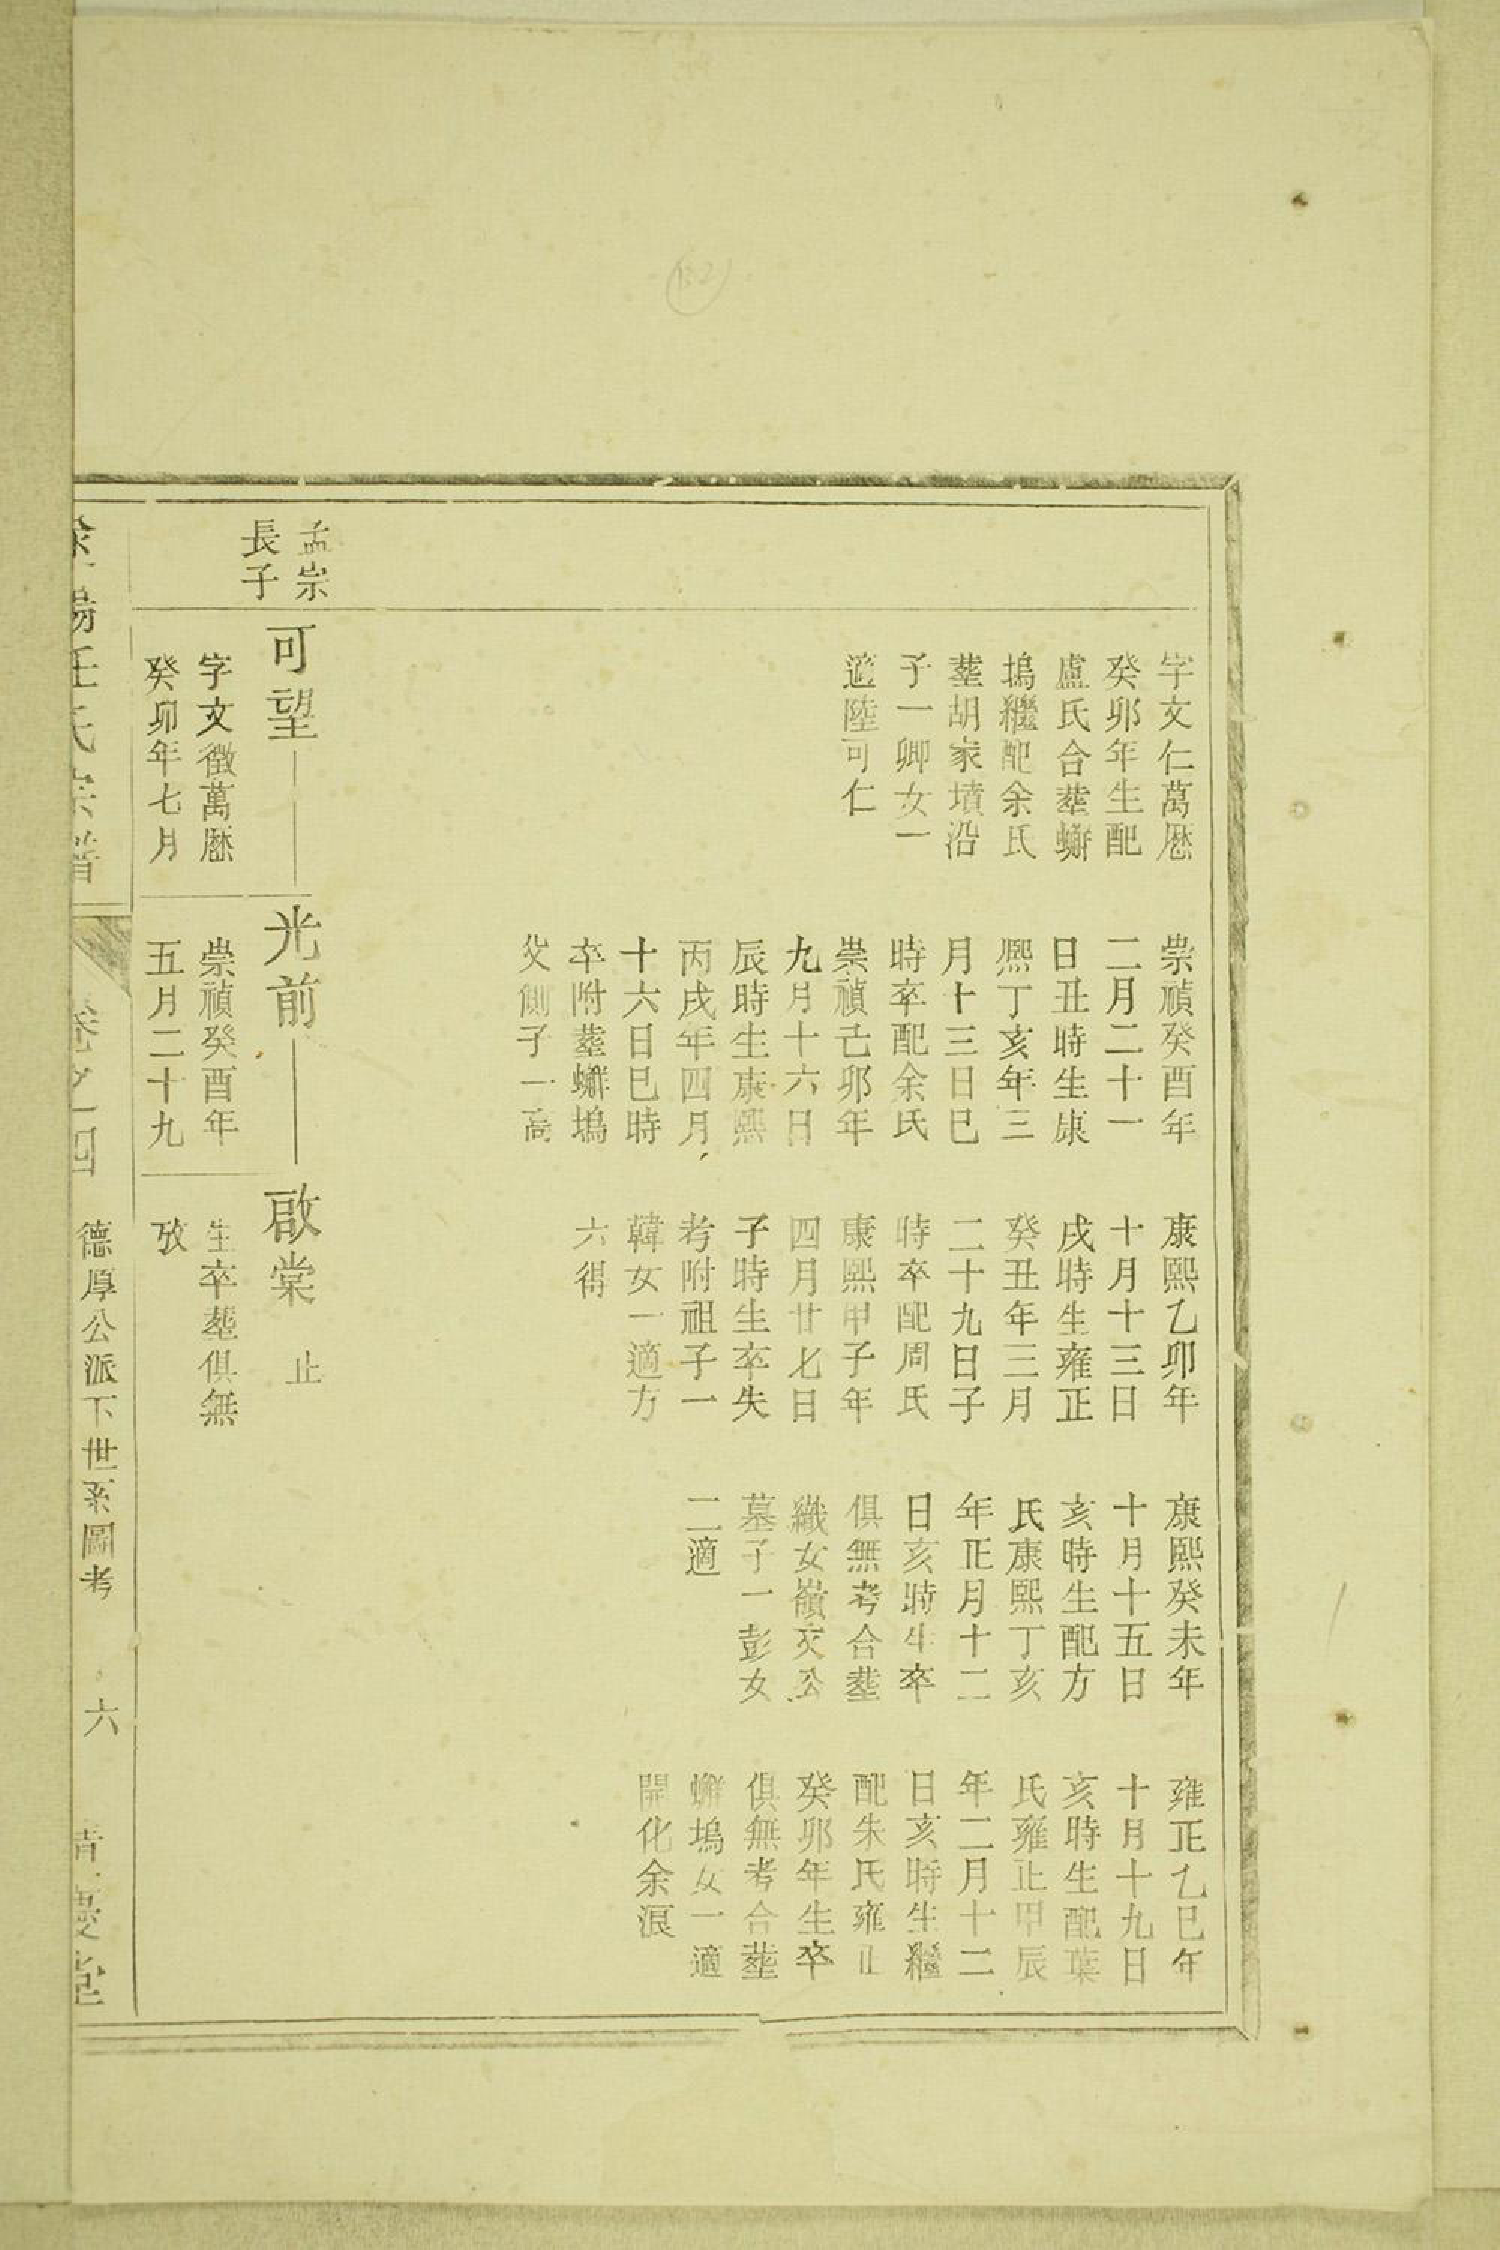 字文仁萬厯
癸卯年生配
盧氏合塟蠏
塢繼配余氏
塟胡家墳沿
子一卿女一
適陸可仁
崇禎癸酉年
二月二十一
日丑時生康
熙丁亥年三
月十三日巳
時卒配余氏
崇禎己卯年
九月十六日
辰時生康熙
丙戌年四月
十六日巳時
卒附塟蠏塢
父側子一高
康熙乙卯年
十月十三日
戌時生雍正
癸丑年三月
二十九日子
時卒配周氏
康熙甲子年
四月廿七日
子時生卒失
考附祖子一
韓女一適方
六得
康熙癸未年
十月十五日
亥時生配方
氏康熙丁亥
年正月十二
日亥時生卒
俱無考合塟
織女嶺文公
墓子一彭女
二適
雍正乙巳年
十月十九日
亥時生配葉
氏雍正甲辰
年二月十二
日亥時生繼
配朱氏雍正
癸卯年生卒
俱無考合塟
蠏塢女一適
開化余淏
孟宗
長子
可望
光前
啟棠 止
字文徵萬厯
癸卯年七月
崇禎癸酉年
五月二十九
生卒塟俱無
攷
汪氏宗譜
卷之四
德厚公派下世系圖考
六
堂